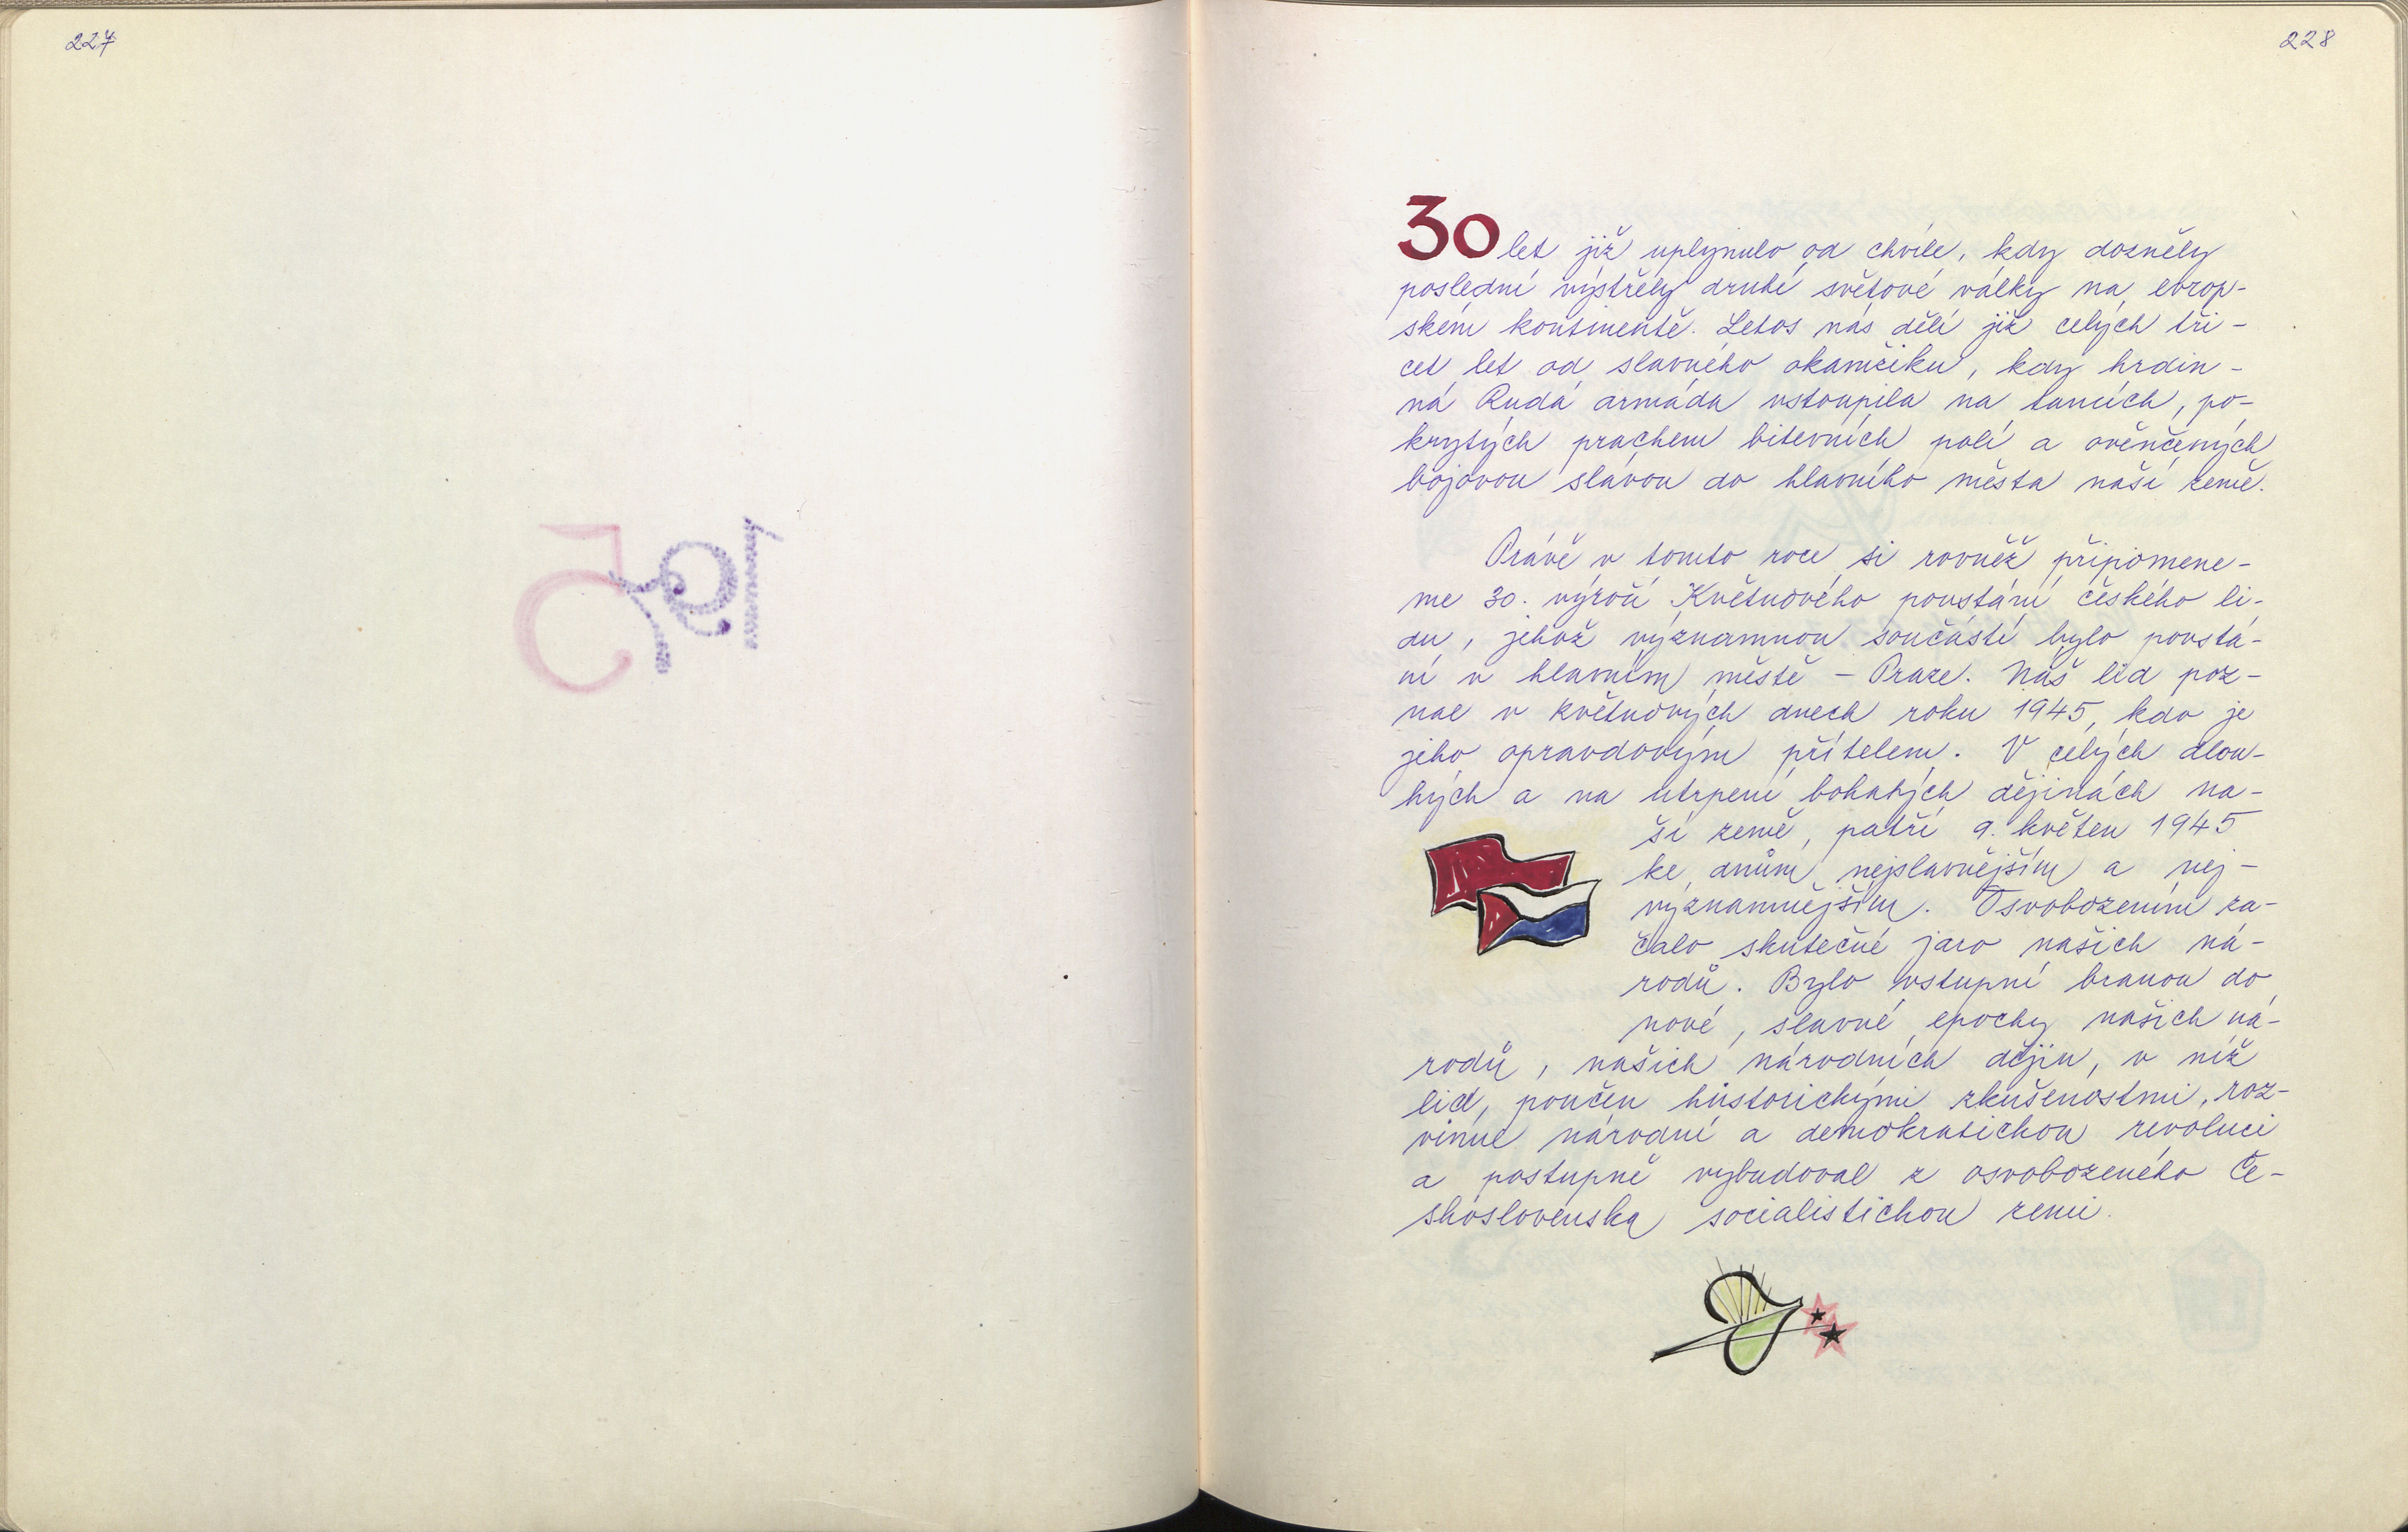 227
1975
228
30 let již uplynulo od chvíle, kdy dozněly
poslední výstřely druhé světové války na evrop-
ském kontinentě. Letos nás dělí již celých tři-
cet let od slavného okamžiku, kdy hrdin-
ná Rudá armáda vstoupila na tancích, po-
krytých prachem bitevních polí a ověnčených
bojovou slávou do hlavního města naší země.
Právě v tomto roce si rovněž připomene-
me 30. výročí Květnového povstání českého li-
du, jehož významnou součástí bylo povstá-
ní v hlavním městě - Praze. Náš lid poz-
nal v květnových dnech roku 1945, kdo je
jeho opravdovým přítelem. V celých dlou-
hých a na utrpení bohatých dějinách na-
ší země, patří 9. květen 1945
ke dnům nejslavnějším a nej-
významnějším. Osvobozením za-
čalo skutečné jaro našich ná-
rodů. Bylo vstupní branou do
nové, slavné epochy našich ná-
rodů, našich národních dějin, v níž
lid, poučen historickými zkušenostmi, roz-
vinul národní a demokratickou revoluci
a postupně vybudoval z osvobozeného Če-
skoslovenska socialistickou zemi.